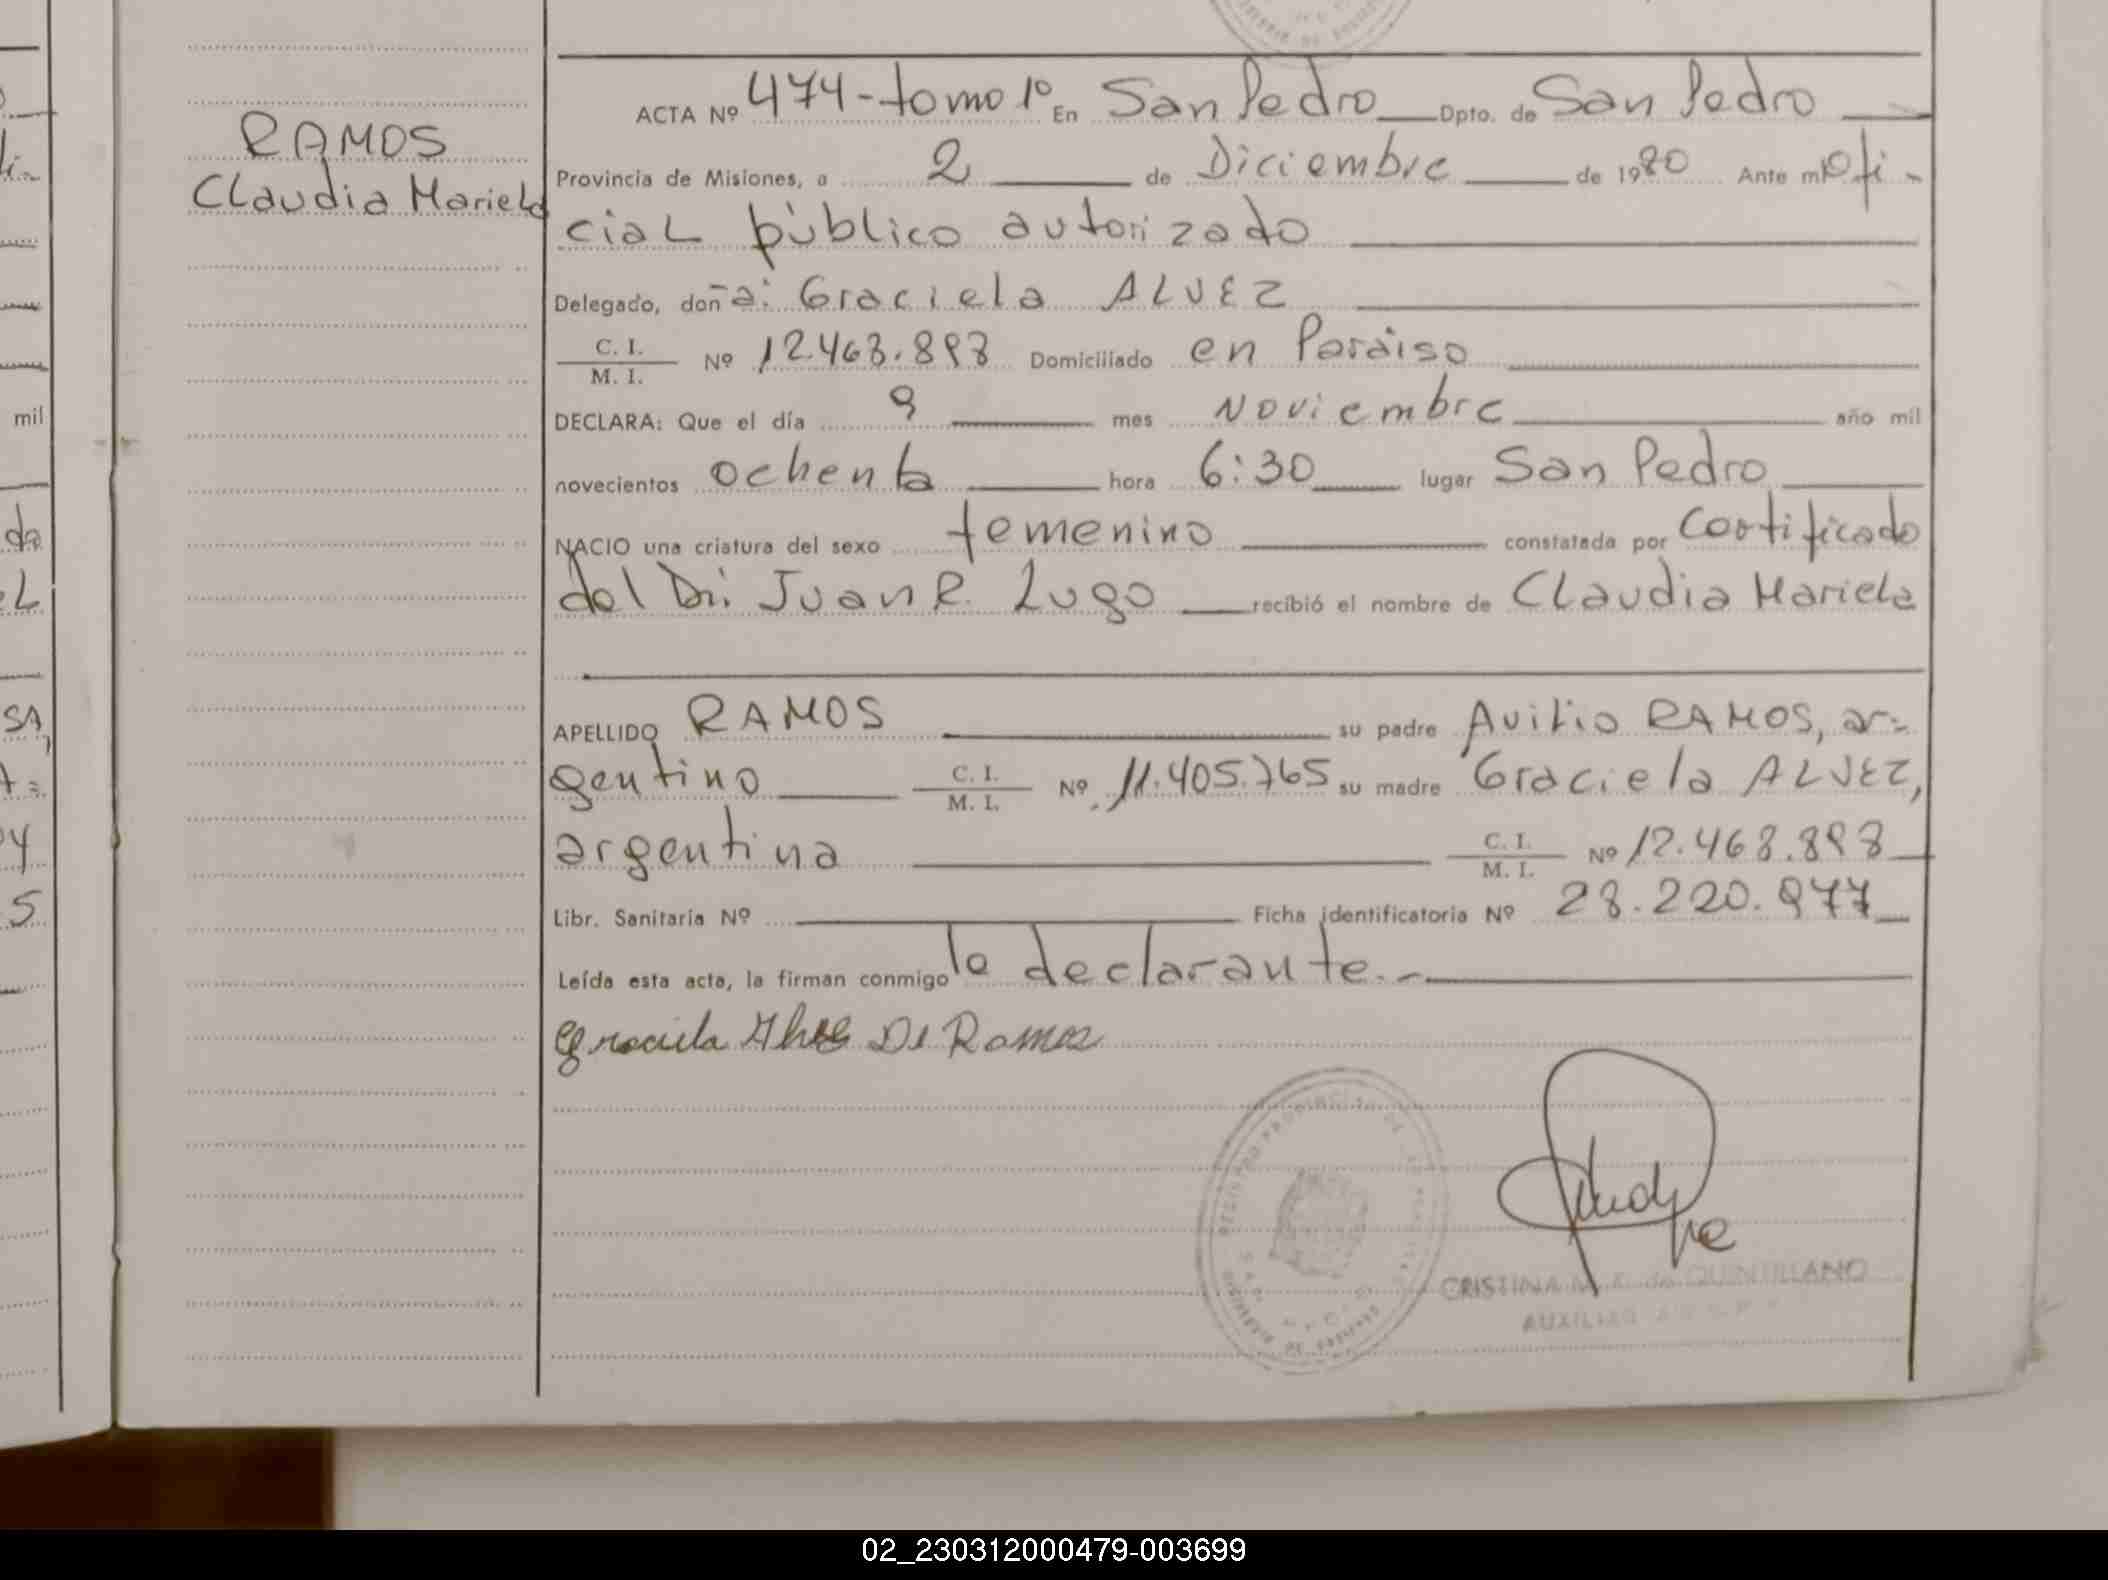 RAMOS
Claudia Mariela
ACTA Nº 474-tomo 1º En San Pedro Dpto. de San Pedro
Provincia de Misiones, a 2 de Diciembre de 1980 Ante mí Ofi-
cial público autorizado
Delegado, doña: Graciela ALVEZ
C. I. / M. I. Nº 12.468.898 Domiciliado en Paraiso
DECLARA: Que el día 9 mes Noviembre año mil
novecientos ochenta hora 6:30 lugar San Pedro
NACIO una criatura del sexo femenino constatada por Certificado
del Dr. Juan R. Lugo recibió el nombre de Claudia Mariela
APELLIDO RAMOS su padre Avilio RAMOS, ar-
gentino C. I. / M. I. Nº 11.405.765 su madre Graciela ALVEZ,
argentina C. I. / M. I. Nº 12.468.898
Libr. Sanitaria Nº Ficha identificatoria Nº 28.220.977
Leída esta acta, la firman conmigo la declarante.-
Graciela De Ramos
CRISTINA de QUINTILLANO
02_230312000479-003699